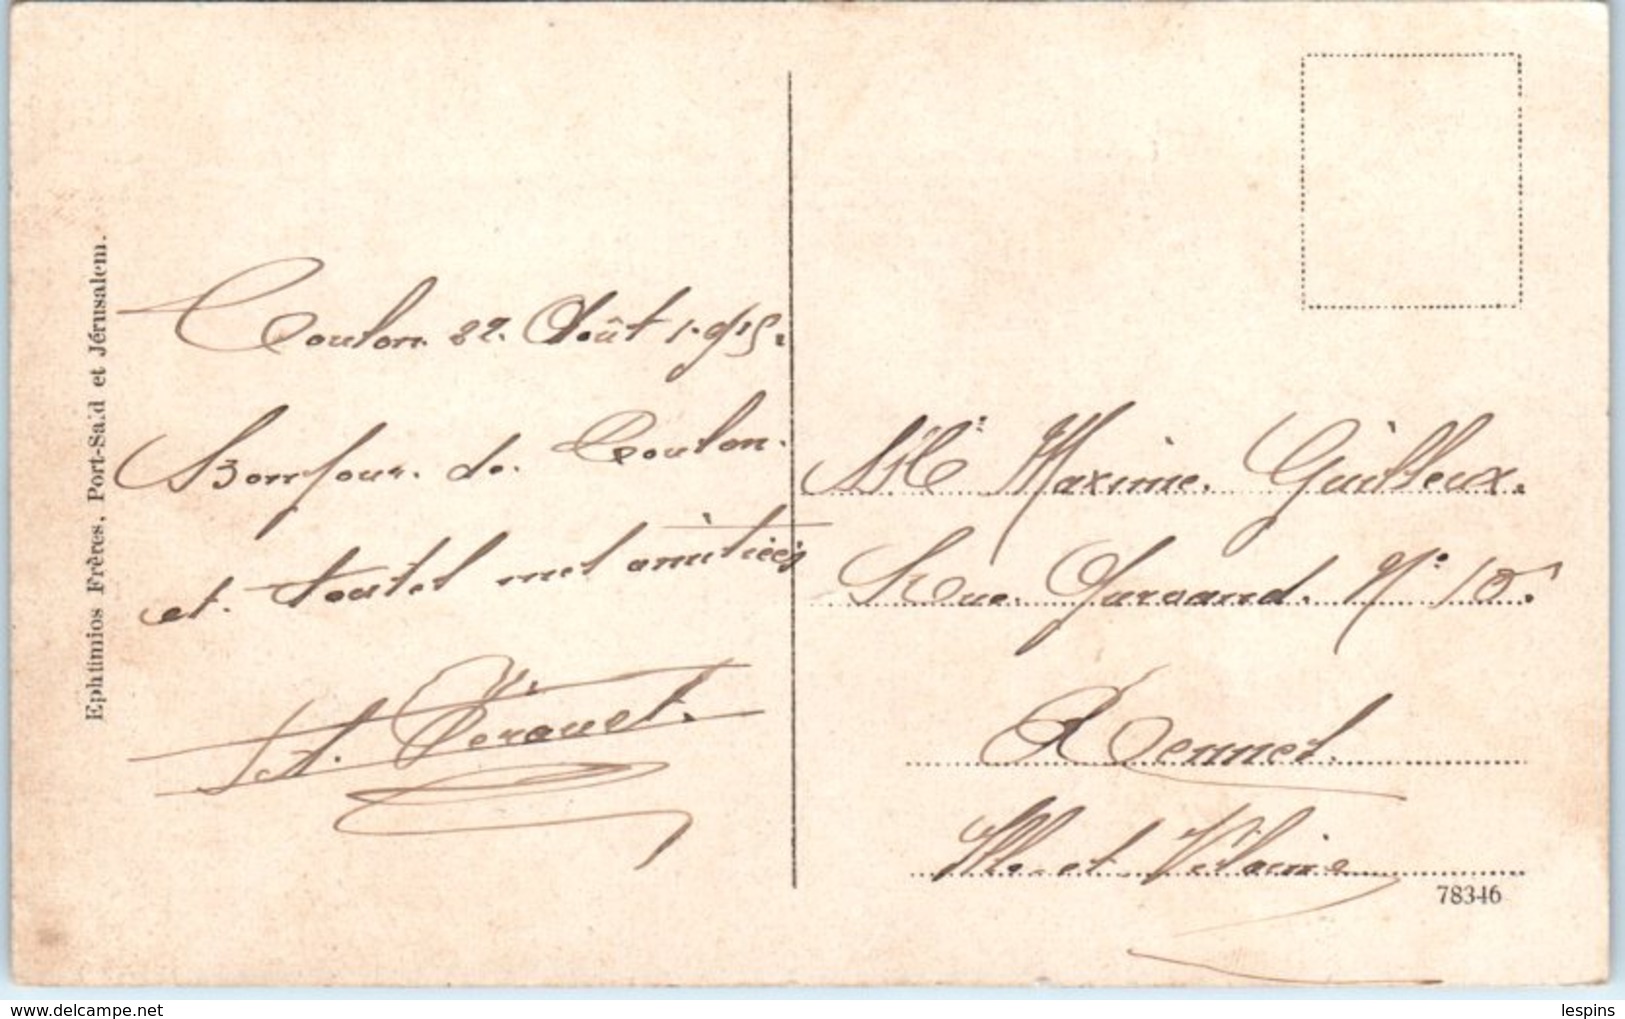 Ephtimios Frères, Port-Saïd et Jérusalem.
Toulon. 22. Août 1.915.
Bonjour. de. Toulon.
et. toutes mes amitiées
Mlle Maxime. Guilleux.
Rue. Gurvand. N° 10.
Rennes.
Ille. et. Vilaine
78346
delcampe.net
lespins